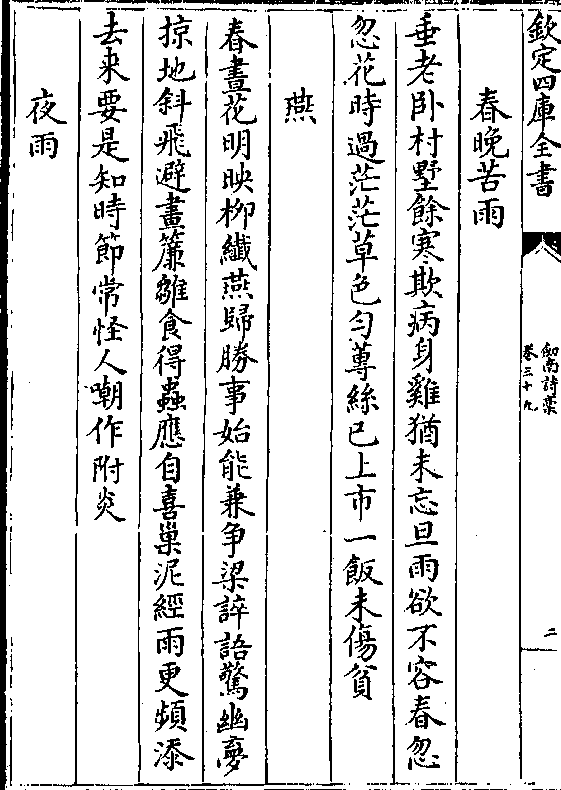 欽定四庫全書
劒南詩藁
卷三十九
二
春晚苦雨
垂老卧村墅餘寒欺病身雞猶未忘旦雨欲不容春忽
忽花時過茫茫草色匀蓴絲已上市一飯未傷貧
燕
春晝花明映柳纎燕歸勝事始能兼争梁誶語驚幽夢
掠地斜飛避畫簾雛食得蟲應自喜巢泥經雨更頻添
去来要是知時節常怪人嘲作附炎
夜雨